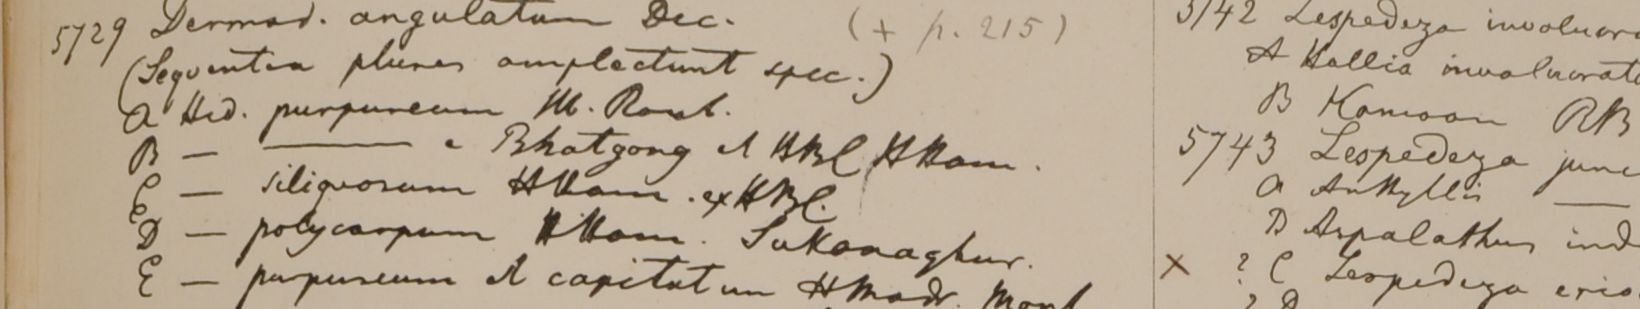 5729 Desmod. angulatum Dec. (+ p. 215)
(Sequentia plures amplectunt spec.)
A Hed. purpureum M. Roxb.
B — ——— e Bhatgong et HBC HHam.
C — siliquosum HHam. ex HBC.
D — polycarpum HHam. Sukanaghur.
E — purpureum et capitatum HMadr.
5742 Lespedeza involucra
A Hallia involucrat
B Kamoon RB
5743 Lespedeza junc
A Anthyllis ——
B Aspalathus ind
× ? C Lespedeza erio
? D